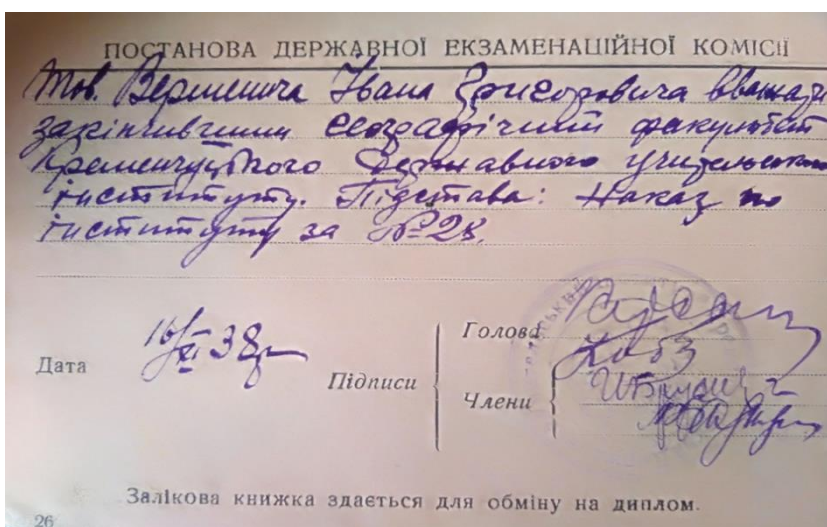 ПОСТАНОВА ДЕРЖАВНОЇ ЕКЗАМЕНАЦІЙНОЇ КОМІСІЇ
Тов. Верменича Івана Григоровича вважати
закінчившим географічний факультет
Кременчуцького Державного учительського
інституту. Підстава: Наказ по
інституту за № 28.
Дата
16/XI 38р
Підписи
Голова
Члени
Залікова книжка здається для обміну на диплом.
26